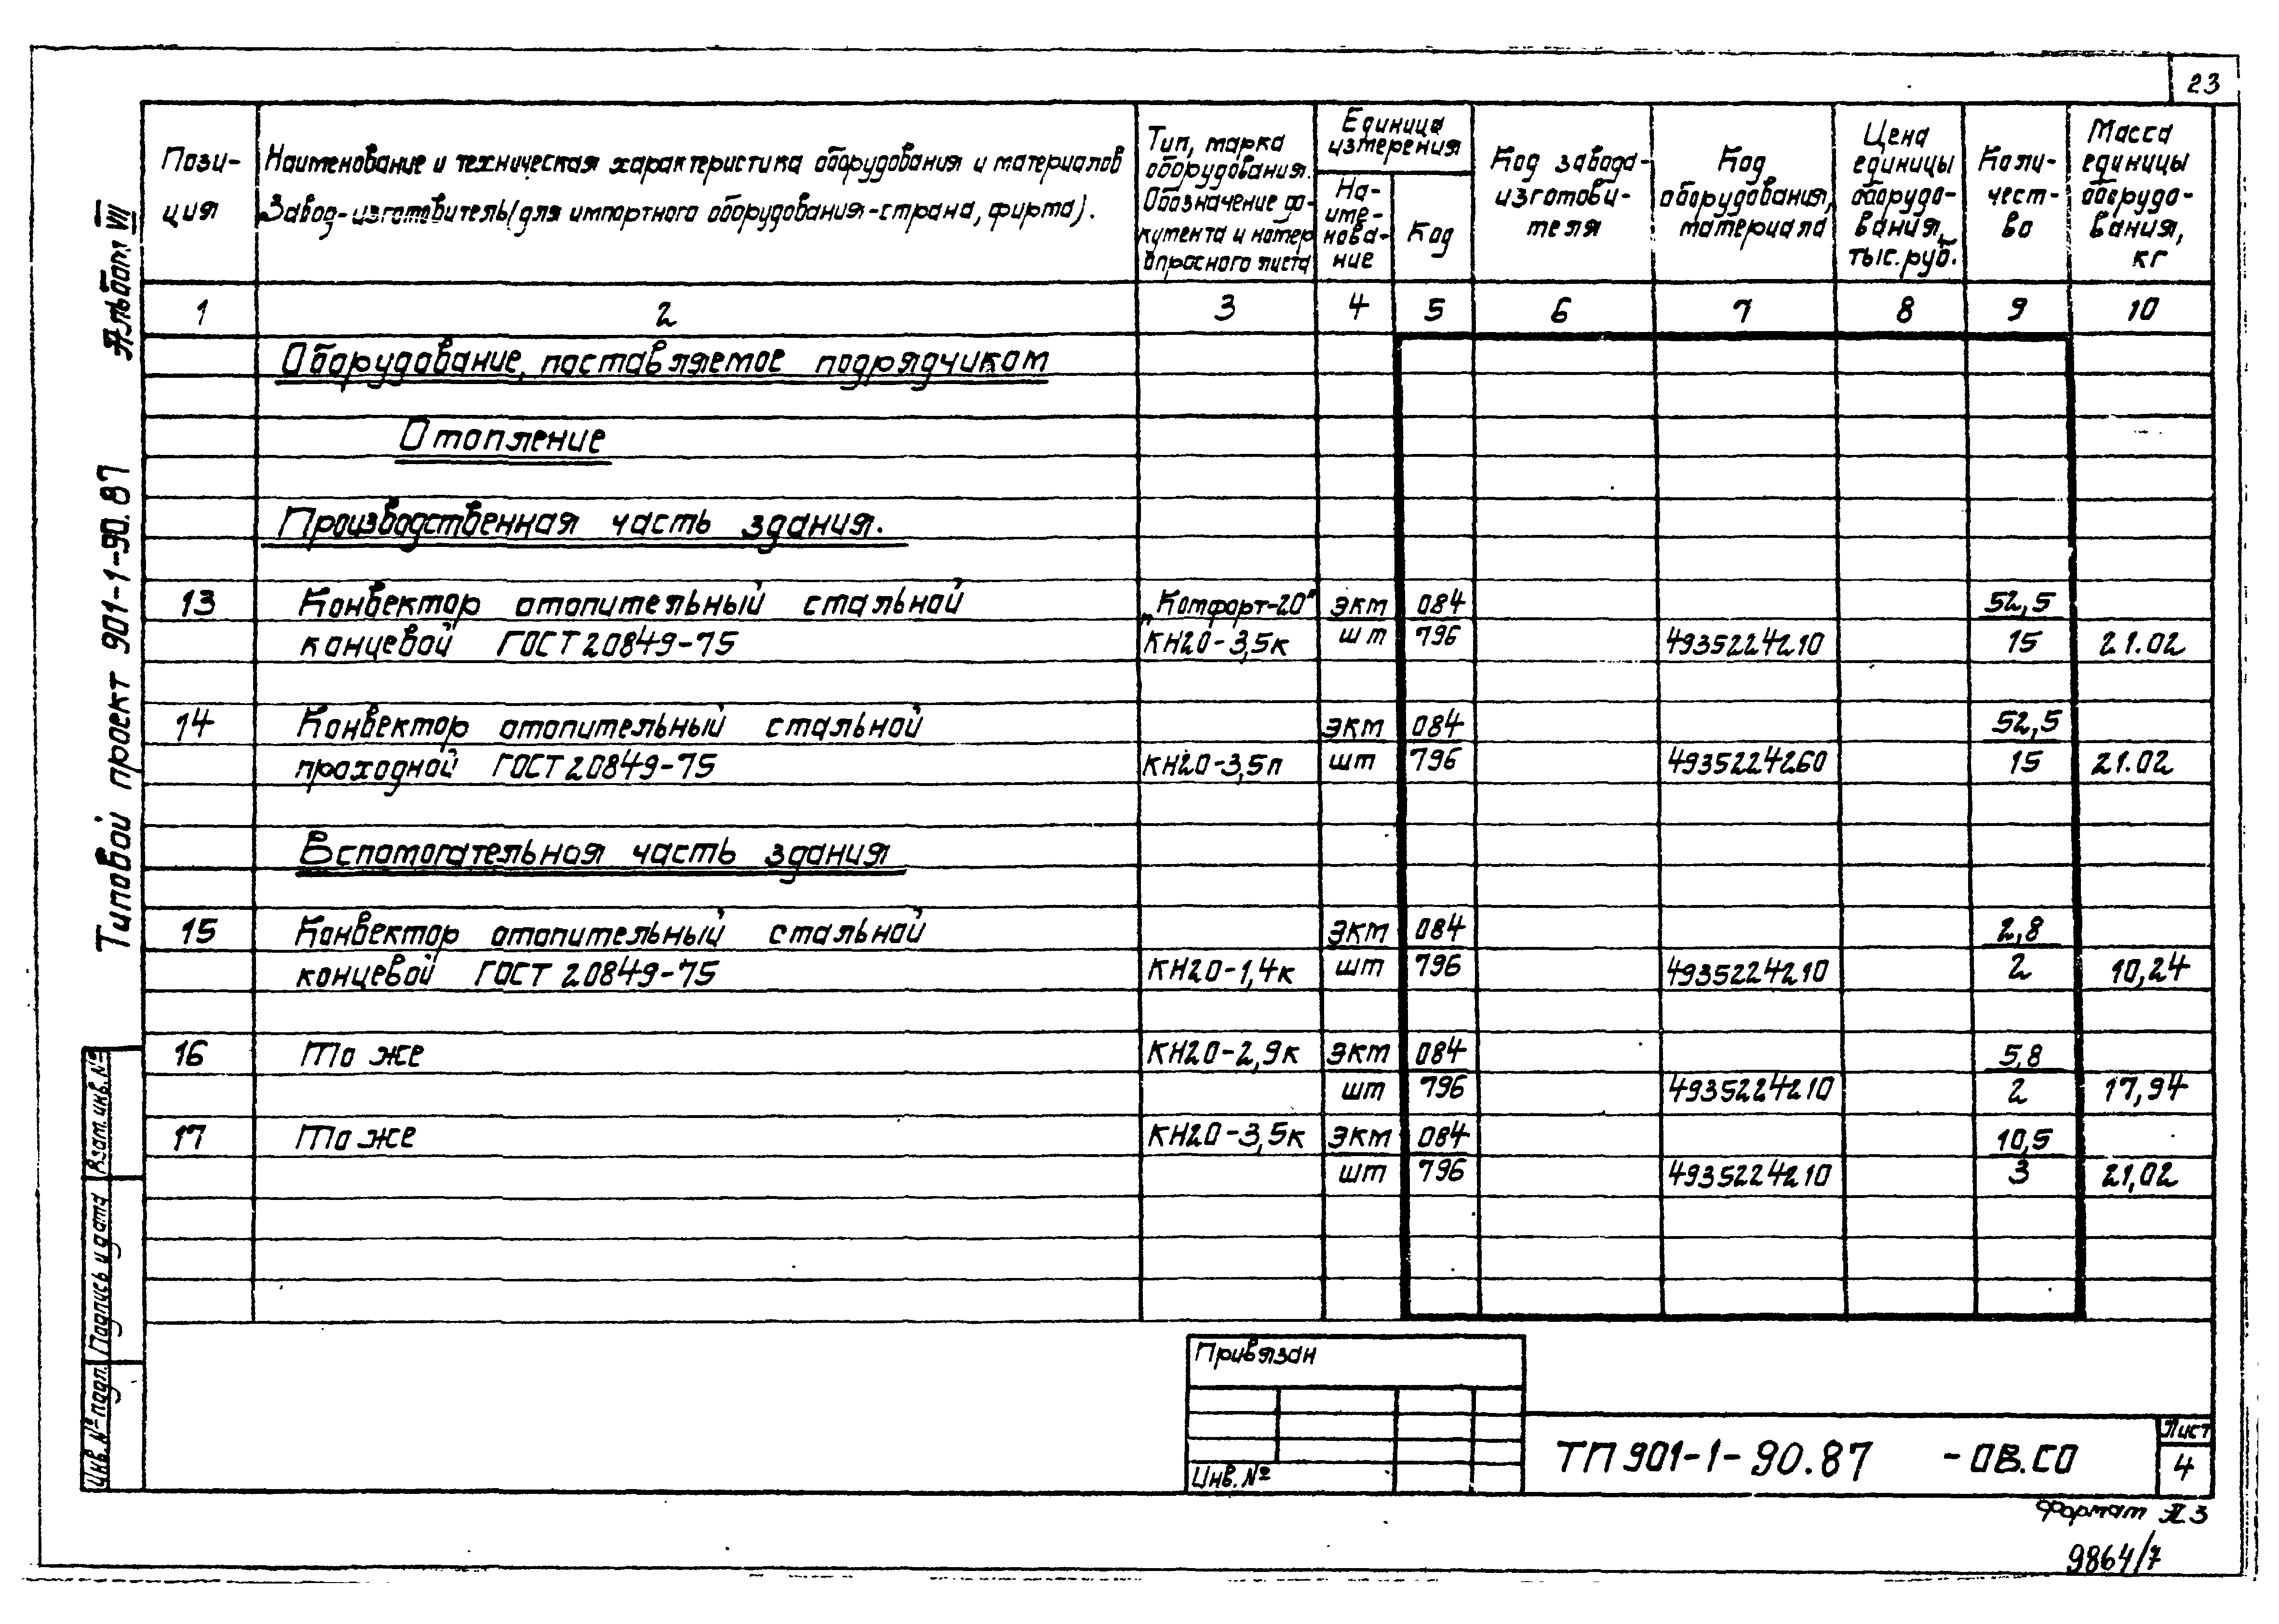 23
Пози-
ция
Наименование и техническая характеристика оборудования и материалов
Завод-изготовитель (для импортного оборудования-страна, фирма).
Тип, марка
оборудования.
Обозначение до-
кумента и номер
опросного листа
Единица
измерения
На-
име-
нова-
ние
Код
Код завода-
изготови-
теля
Код
оборудования,
материала
Цена
единицы
оборудо-
вания,
тыс.руб.
Коли-
чест-
во
Масса
единицы
оборудо-
вания,
кг
1 2 3 4 5 6 7 8 9 10
Оборудование, поставляемое подрядчиком
Отопление
Производственная часть здания.
13 Конвектор отопительный стальной „Комфорт-20" экм 084 52,5
концевой ГОСТ 20849-75 КН20-3,5к шт 796 4935224210 15 21.02
14 Конвектор отопительный стальной экм 084 52,5
проходной ГОСТ 20849-75 КН20-3,5п шт 796 4935224260 15 21.02
Вспомогательная часть здания
15 Конвектор отопительный стальной экм 084 2,8
концевой ГОСТ 20849-75 КН20-1,4к шт 796 4935224210 2 10,24
16 То же КН20-2,9к экм 084 5,8
шт 796 4935224210 2 17,94
17 То же КН20-3,5к экм 084 10,5
шт 796 4935224210 3 21,02
Альбом VII
Типовой проект 901-1-90.87
Взам. инв. №
Подпись и дата
Инв. № подл.
Привязан
Инв. №
ТП 901-1-90.87 -ОВ.СО
Лист
4
Формат А3
9864/7